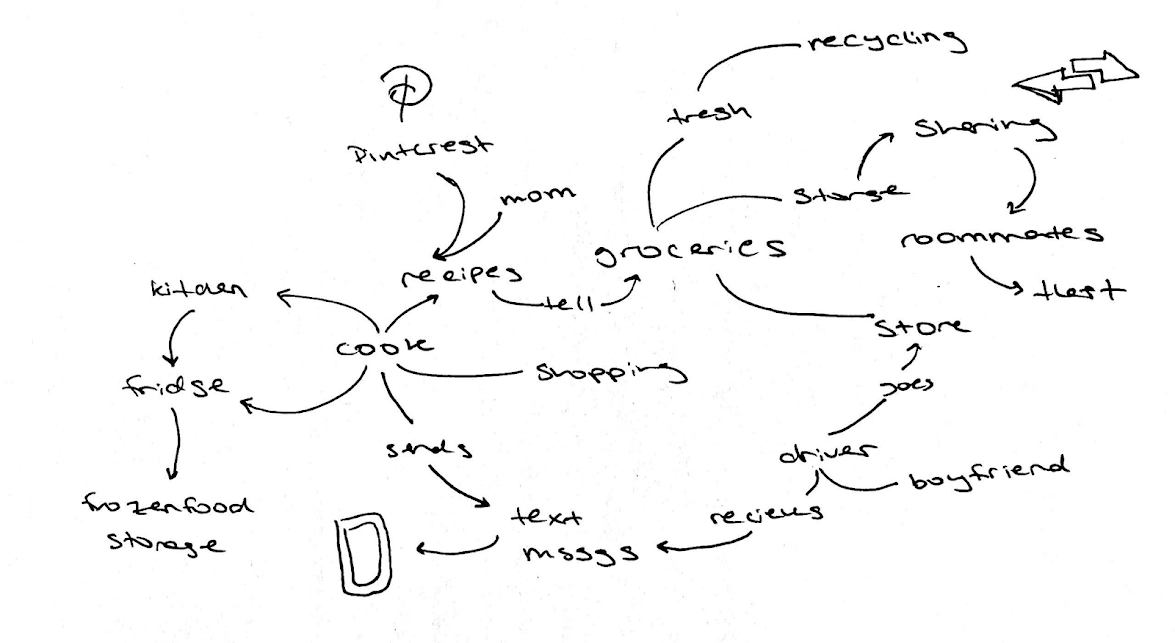 recycling
trash
sharing
Pinterest
mom
storage
groceries
roommates
recipes
kitchen
tell
theft
store
cook
shopping
fridge
goes
sends
driver
boyfriend
frozenfood
storage
text
recieves
mssgs